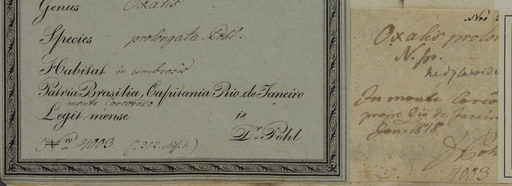 Genus Oxalis
Species prolongata Pohl.
Habitat in umbrosis
Patria Brasilia, Capitania Rio de Janeiro
monte Corcovado
Legit mense is
Dr. Pohl
Nro 4093
Oxalis prolon
N. sp.
In monte Corco
prope Rio de Janeiro
Jan. 1818
Pohl
4093